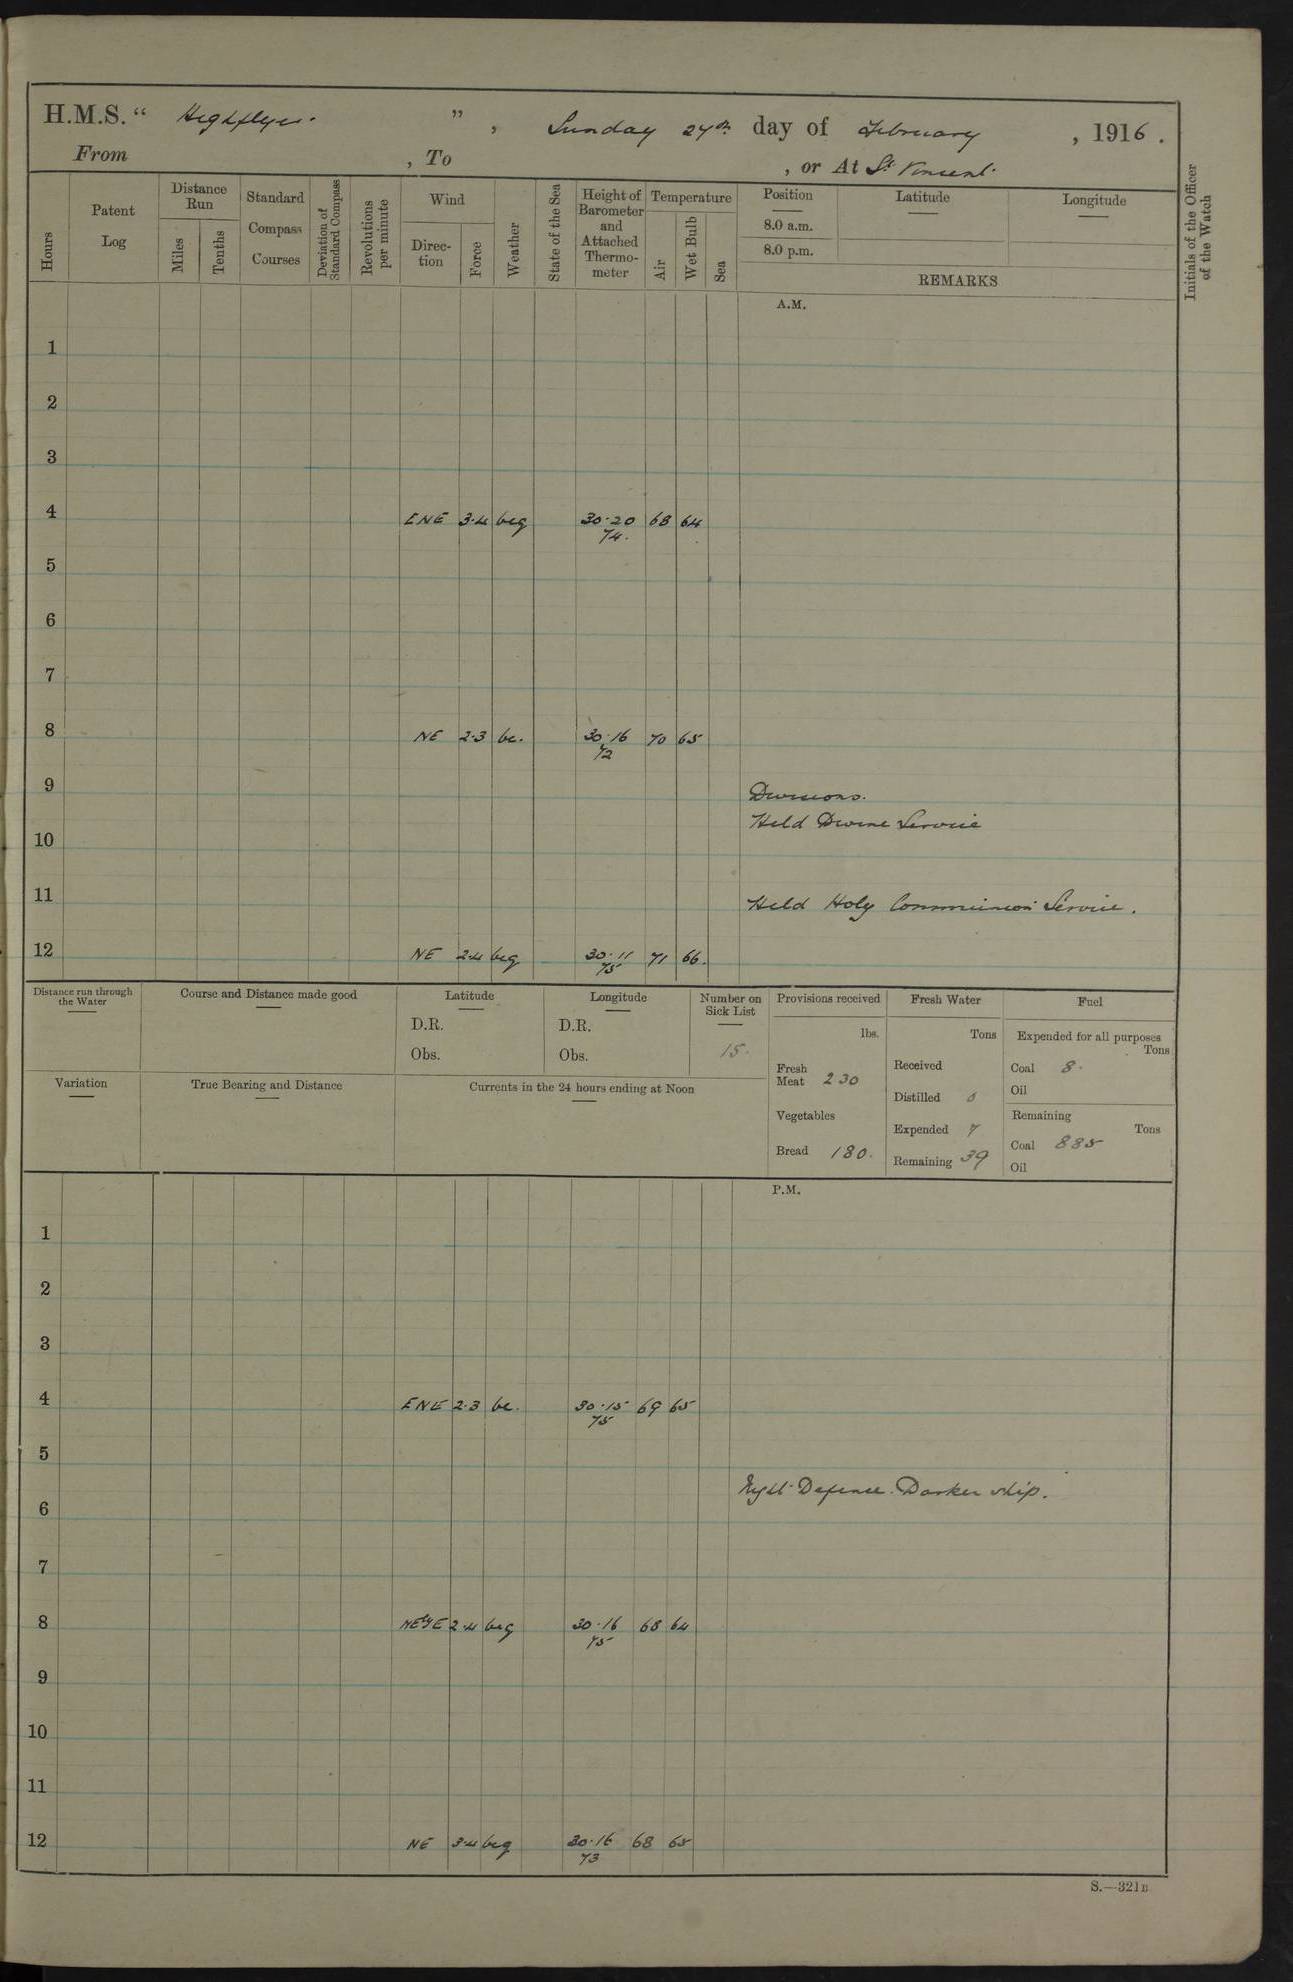 H.M.S. “ Highflyer. ” , Sunday 27th day of February , 1916 .
From , To , or At St Vincent.
Hours
Patent Log
Distance Run
Miles
Tenths
Standard Compass Courses
Deviation of Standard Compass
Revolutions per minute
Wind
Direc-tion
Force
Weather
State of the Sea
Height of Barometer and Attached Thermo-meter
Temperature
Air
Wet Bulb
Sea
Position
8.0 a.m.
8.0 p.m.
Latitude
Longitude
REMARKS
Initials of the Officer of the Watch
A.M.
1
2
3
4 ENE 3.4 bcg 30.20 68 64
74.
5
6
7
8 NE 2.3 bc. 30.16 70 65
72
9 Divisions.
Held Divine Service
10
11 Held Holy Communion Service.
12 NE 2.4 bcg 30.11 71 66.
75
Distance run through the Water
Course and Distance made good
Latitude
D.R.
Obs.
Longitude
D.R.
Obs.
Number on Sick List
15.
Provisions received
lbs.
Fresh Meat 230
Vegetables
Bread 180.
Fresh Water
Tons
Received
Distilled 0
Expended 7
Remaining 39
Fuel
Expended for all purposes
Tons
Coal 8.
Oil
Remaining
Tons
Coal 885
Oil
Variation
True Bearing and Distance
Currents in the 24 hours ending at Noon
P.M.
1
2
3
4 ENE 2.3 bc. 30.15 69 65
75
5
Night Defence. Darken ship.
6
7
8 NEbyE 2.4 bcg 30.16 68 64
75
9
10
11
12 NE 3.4 bcg 30.16 68 65
73
S.—321B